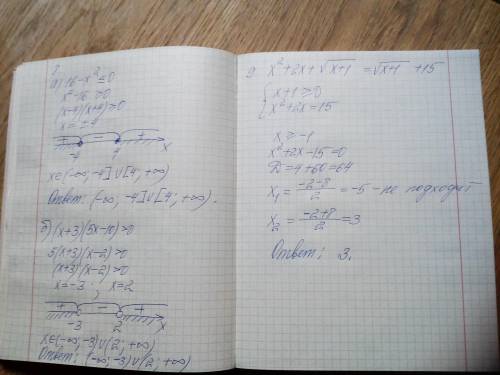 8
а) 16 - x² ≤ 0
x² - 16 ≥ 0
(x-4)(x+4) ≥ 0
x = ± 4
+ - +
-4 4 x
x∈(-∞; -4]∪[4; +∞)
Ответ: (-∞; -4]∪[4; +∞).
б) (x+3)(5x-10)>0
5(x+3)(x-2)>0
(x+3)(x-2)>0
x = -3 ; x = 2
+ - +
-3 2 x
x∈(-∞; -3)∪(2; +∞)
Ответ: (-∞; -3)∪(2; +∞)
9. x² + 2x + √x+1 = √x+1 + 15
{ x+1 ≥ 0
x² + 2x = 15
x ≥ -1
x² + 2x - 15 = 0
D = 4 + 60 = 64
x₁ = (-2-8)/2 = -5 - не подходит
x₂ = (-2+8)/2 = 3
Ответ: 3.